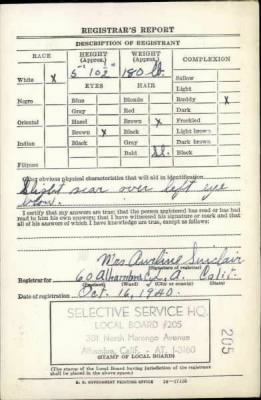 REGISTRAR'S REPORT
DESCRIPTION OF REGISTRANT
RACE
HEIGHT (Approx.)
WEIGHT (Approx.)
COMPLEXION
White X
5' 10½"
180 lb.
Sallow
EYES
HAIR
Light
Negro
Blue
Blonde
Ruddy X
Gray
Red
Dark
Oriental
Hazel
Brown X
Freckled
Brown X
Black
Light brown
Indian
Black
Gray
Dark brown
Bald Sl.
Black
Filipino
Other obvious physical characteristics that will aid in identification
Slight scar over left eye
brow.
I certify that my answers are true; that the person registered has read or has had
read to him his own answers; that I have witnessed his signature or mark and that
all of his answers of which I have knowledge are true, except as follows:
Mrs Sinclair
(Signature of registrar)
Registrar for 60 Alhambra L. A. Calif.
(Ward) (City or county) (State)
Date of registration Oct. 16, 1940.
SELECTIVE SERVICE HQ.
LOCAL BOARD #205
301 North Marengo Avenue
Alhambra, Calif. - AT. 1-3160
205
(STAMP OF LOCAL BOARD)
(The stamp of the Local Board having jurisdiction of the registrant
shall be placed in the above space.)
U. S. GOVERNMENT PRINTING OFFICE 16-17105